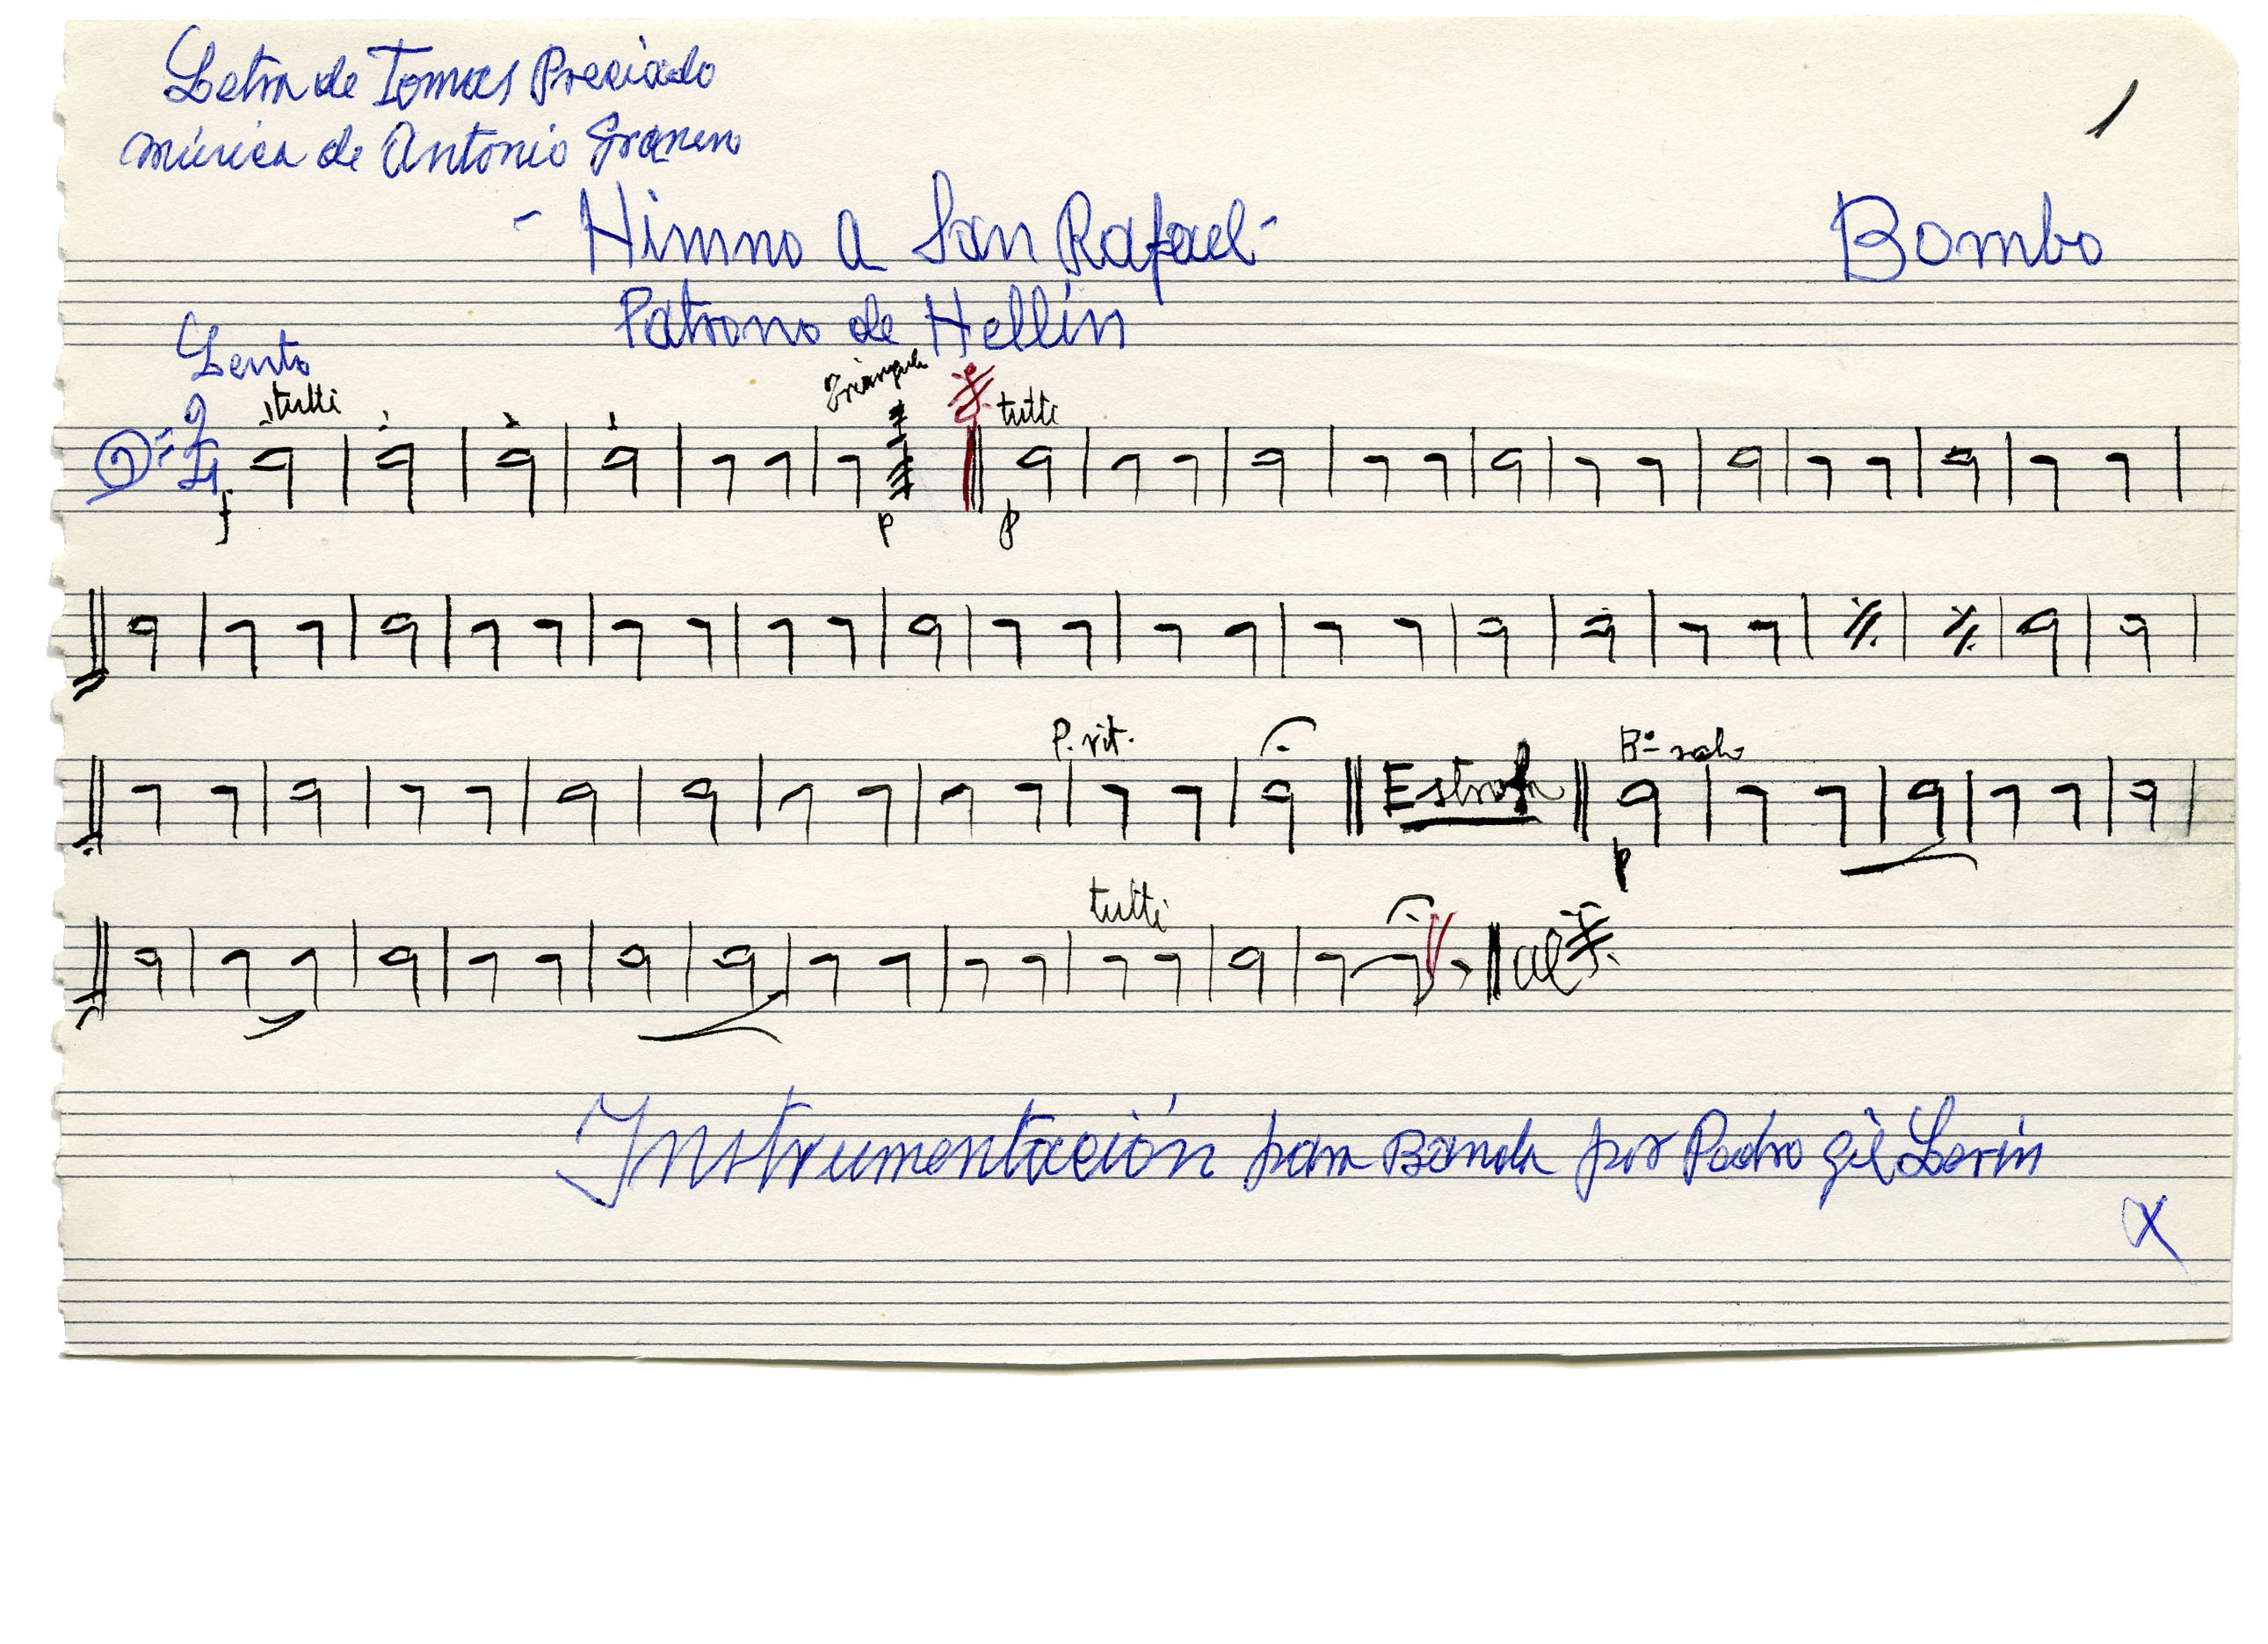 Letra de Tomas Preciado
música de Antonio Granero
1
- Himno a San Rafael -
Bombo
Patrono de Hellín
Lento
tutti
Triángulo
tutti
2
4
f
p
p
P. rit.
Estrofa
Bº solo
p
tutti
al
Instrumentación para Banda por Pedro Gil Lerín